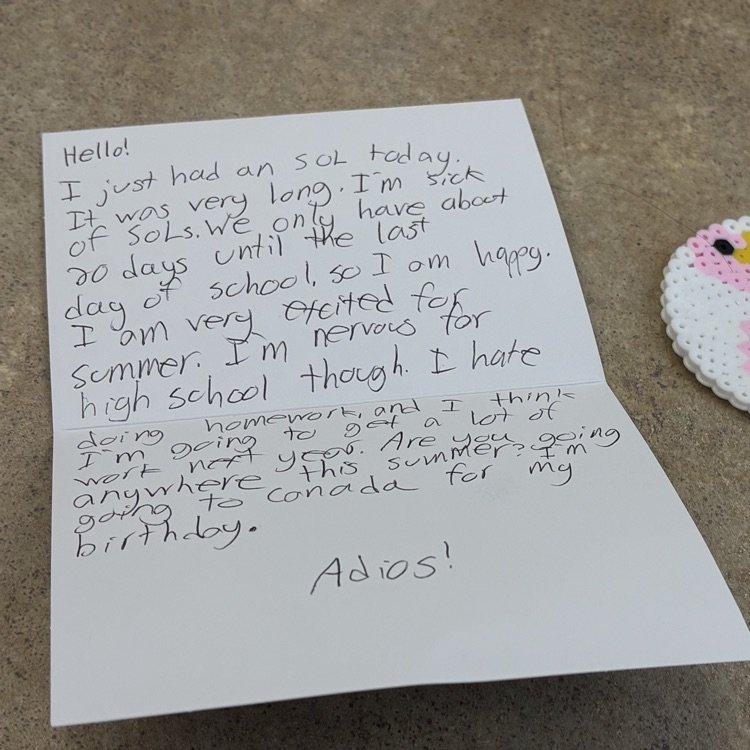 Hello!
I just had an SOL today.
It was very long. I'm sick
of SOLs. We only have about
20 days until the last
day of school, so I am happy.
I am very excited for
summer. I'm nervous for
high school though. I hate
doing homework, and I think
I'm going to get a lot of
work next year. Are you going
anywhere this summer? I'm
going to Canada for my
birthday.
Adios!